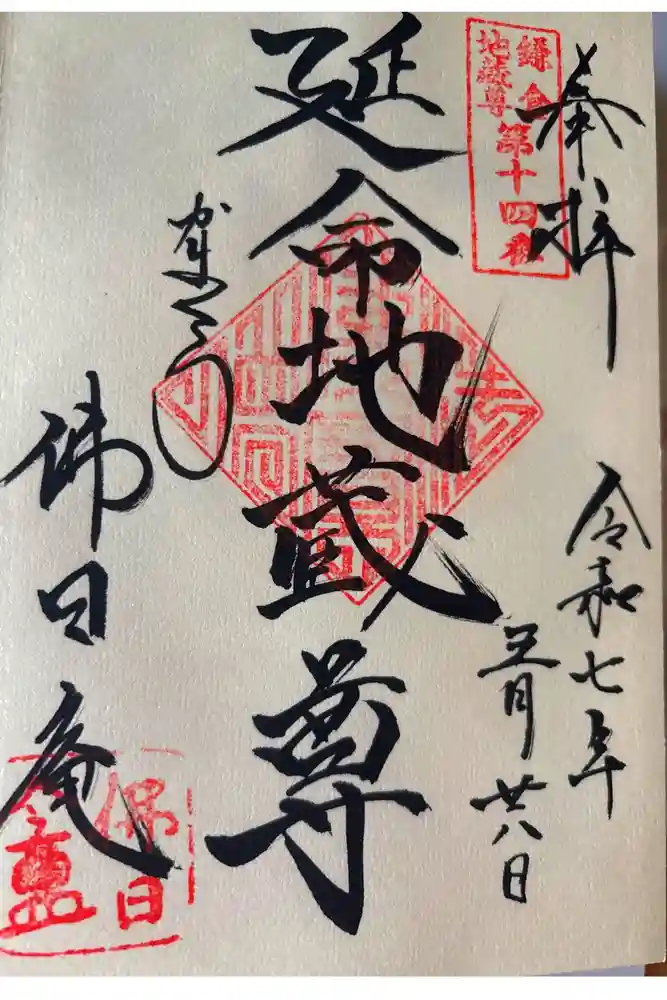 奉拝
鎌倉
地蔵尊
第十四番
令和七年
三月廿八日
延命地蔵尊
かまくら
佛日庵
佛日